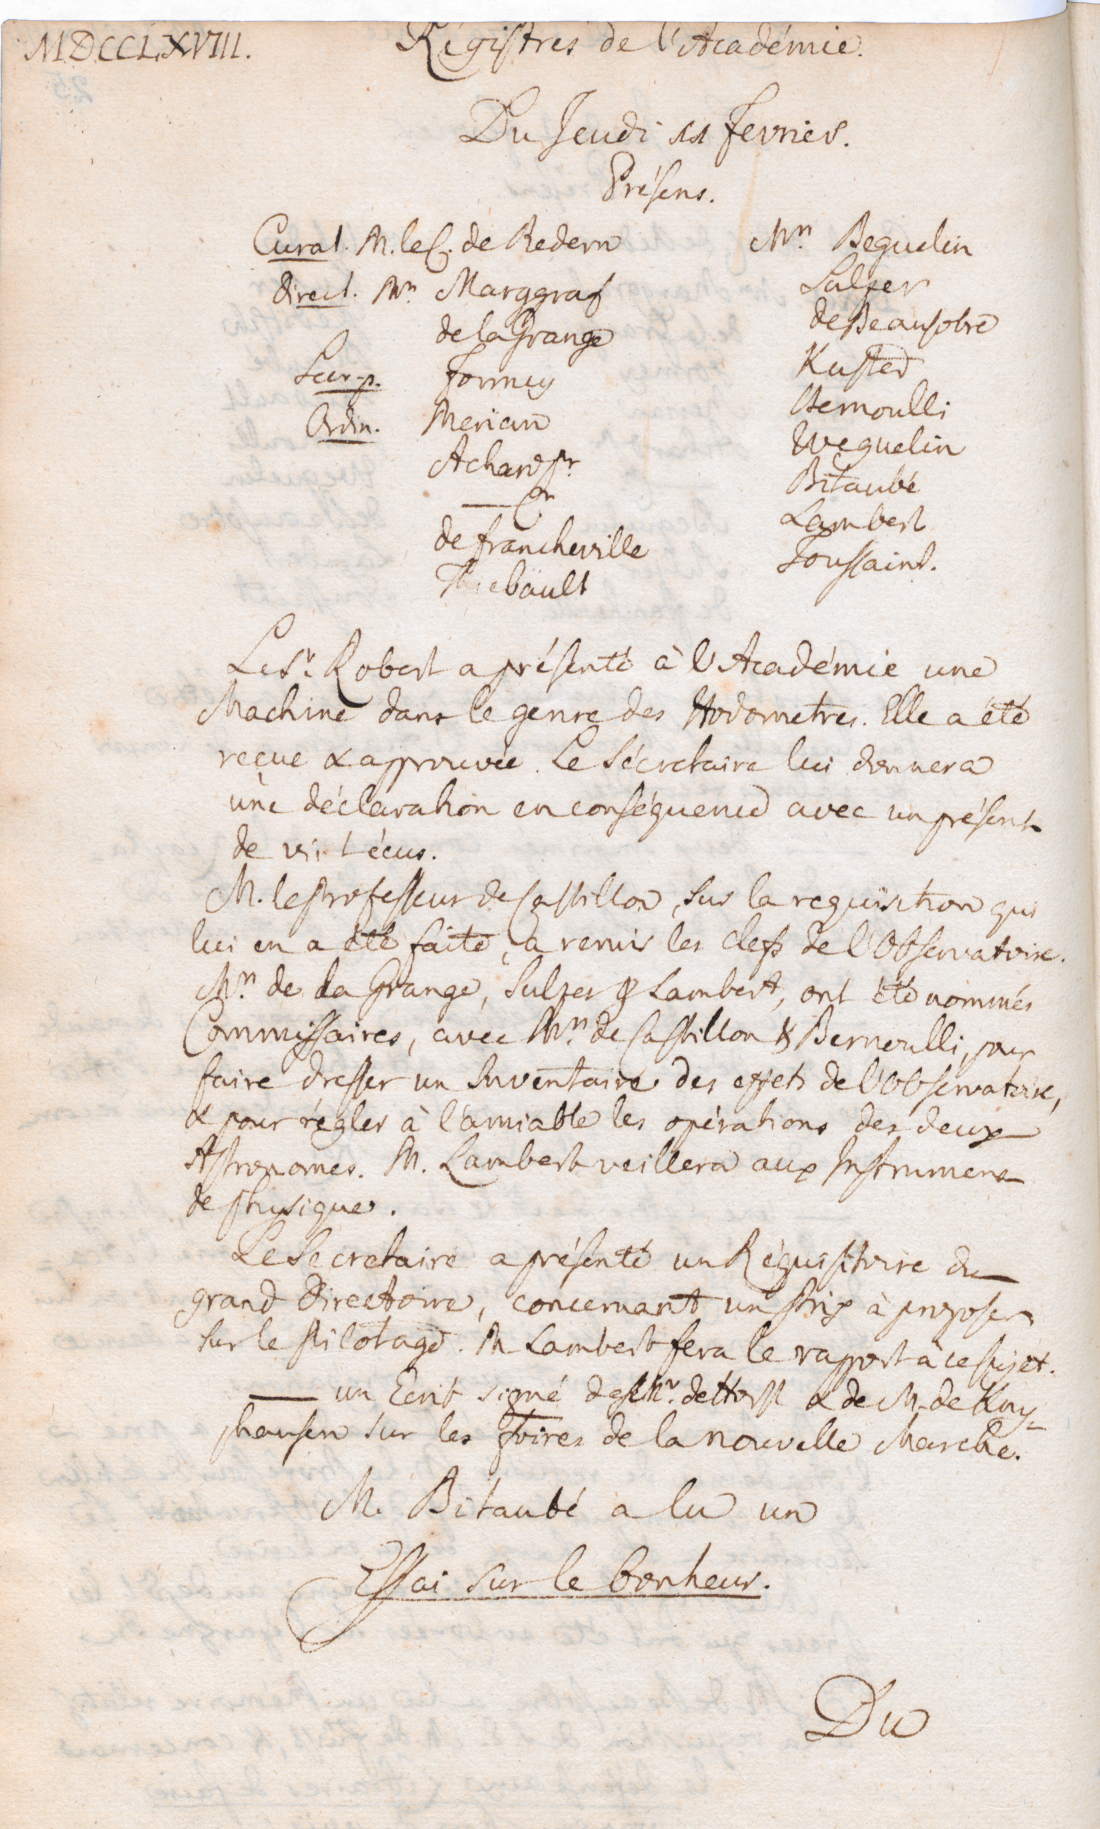 MDCCLXVIII.
Régistres de l'Académie.
Du Jeudi 11 Fevrier.
Présens.
Curat. M. le C. de Redern
Direct. Mrs Marggraf
de la Grange
Secr. p. Formey
Ordin. Merian
Achard pr
—— Cr
de Francheville
Thiebault
Mrs Beguelin
Sulzer
de Beausobre
Kuster
Bernoulli
Weguelin
Bitaubé
Lambert
Toussaint.
Le Sr. Robert a présenté à l'Académie une
Machine dans le genre des Hodometres. Elle a été
reçue & approuvée. Le Sécretaire lui donnera
une déclaration en conséquence avec un présent
de vint écus.
M. le Professeur de Castillon, sur la requisition qui
lui en a été faite, a remis les clefs de l'Observatoire.
Mrs de la Grange, Sulzer & Lambert, ont été nommés
Commissaires, avec Mrs de Castillon & Bernoulli, pour
faire dresser un Inventaire des effets de l'Observatoire,
& pour régler à l'amiable les opérations des deux
Astronomes. M. Lambert veillera aux Instrumens
de Physique.
Le Secretaire a présenté un Réquisitoire du
grand Directoire, concernant un Prix à proposer
sur le Pilotage. M Lambert fera le rapport à ce sujet.
—— un Ecrit signé de Mr. de Horst & de M. de Kny-
phausen sur les Foires de la nouvelle Marche.
M. Bitaubé a lu un
Essai sur le bonheur.
Du